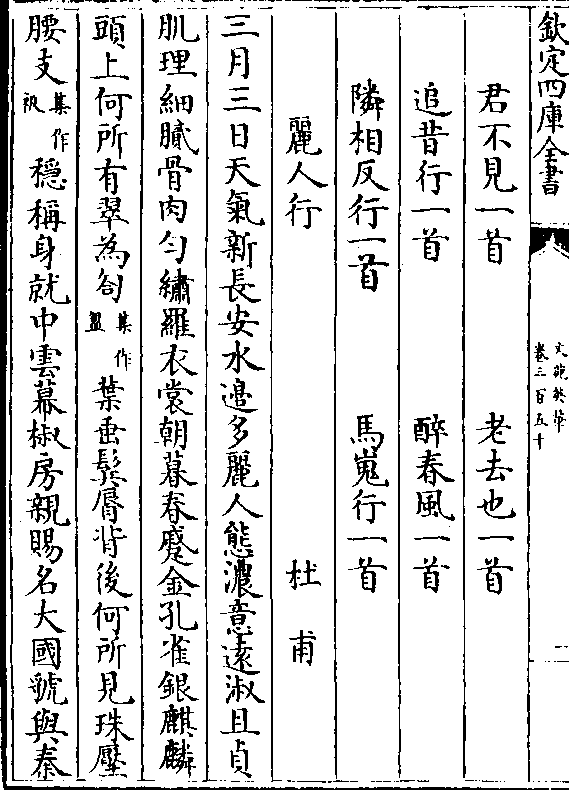 欽定四庫全書
文苑英華
卷三百五十
二
君不見一首　老去也一首
追昔行一首　醉春風一首
隣相反行一首　馬嵬行一首
麗人行　杜甫
三月三日天氣新長安水邉多麗人態濃意逺淑且貞
肌理細膩骨肉勻繡羅衣裳朝暮春蹙金孔雀銀麒麟
頭上何所有翠為㔩集作葉垂鬂脣背後何所見珠壓
腰支集作衱穩稱身就中雲幕椒房親賜名大國虢與秦